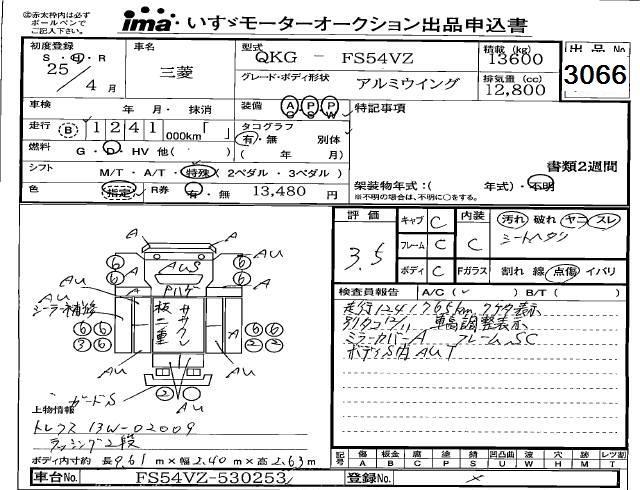 ㊟赤太枠内は必ず
ボールペンで
ご記入下さい。
ima いすゞモーターオークション出品申込書
初度登録
S・H・R
25/4月
車名
三菱
型式
QKG - FS54VZ
積載 (kg)
13600
グレード・ボディ形状
アルミウイング
排気量 (cc)
12,800
出品No
3066
車検 年 月・ 抹消
装備 AG PS PW
特記事項
走行 B 1241 000km「 」
タコグラフ
有・無 別体
( 年 月)
燃料 G・D・HV 他( )
シフト M/T・A/T・特殊 (2ペダル・3ペダル)
書類2週間
色 指定 R券 有・無 13,480円
架装物年式:( 年式)・不明
※不明の場合は、不明に○をする。
評価
3.5
キャブ C
フレーム C
ボディ C
内装
C
Fガラス
汚れ 破れ ヤニ スレ
シートヘタリ
割れ 線 点傷 イバリ
検査員報告 A/C( ✓ ) B/T( )
走行1241765km
車高調整表示
ミラーカバーA フレームSC
ボディS内AUT
A
A
AU
6
6
AU
A
A
6
6
AUS
Pハゲ
AU
シーラー補修
板二重
A
6
6
3
6
6
6
2
2
AU
AU
AU
2
ガードS
上物情報
トレクス 13W-02009
ラッシング2段
ボディ内寸約 長9.61m×幅2.40m×高2.63m
記号 傷A 板金B 腐C 塗F 錆S 凹凸曲U 波W 穴H 跡M レツ割T
車台No. FS54VZ-530253
登録No. ×